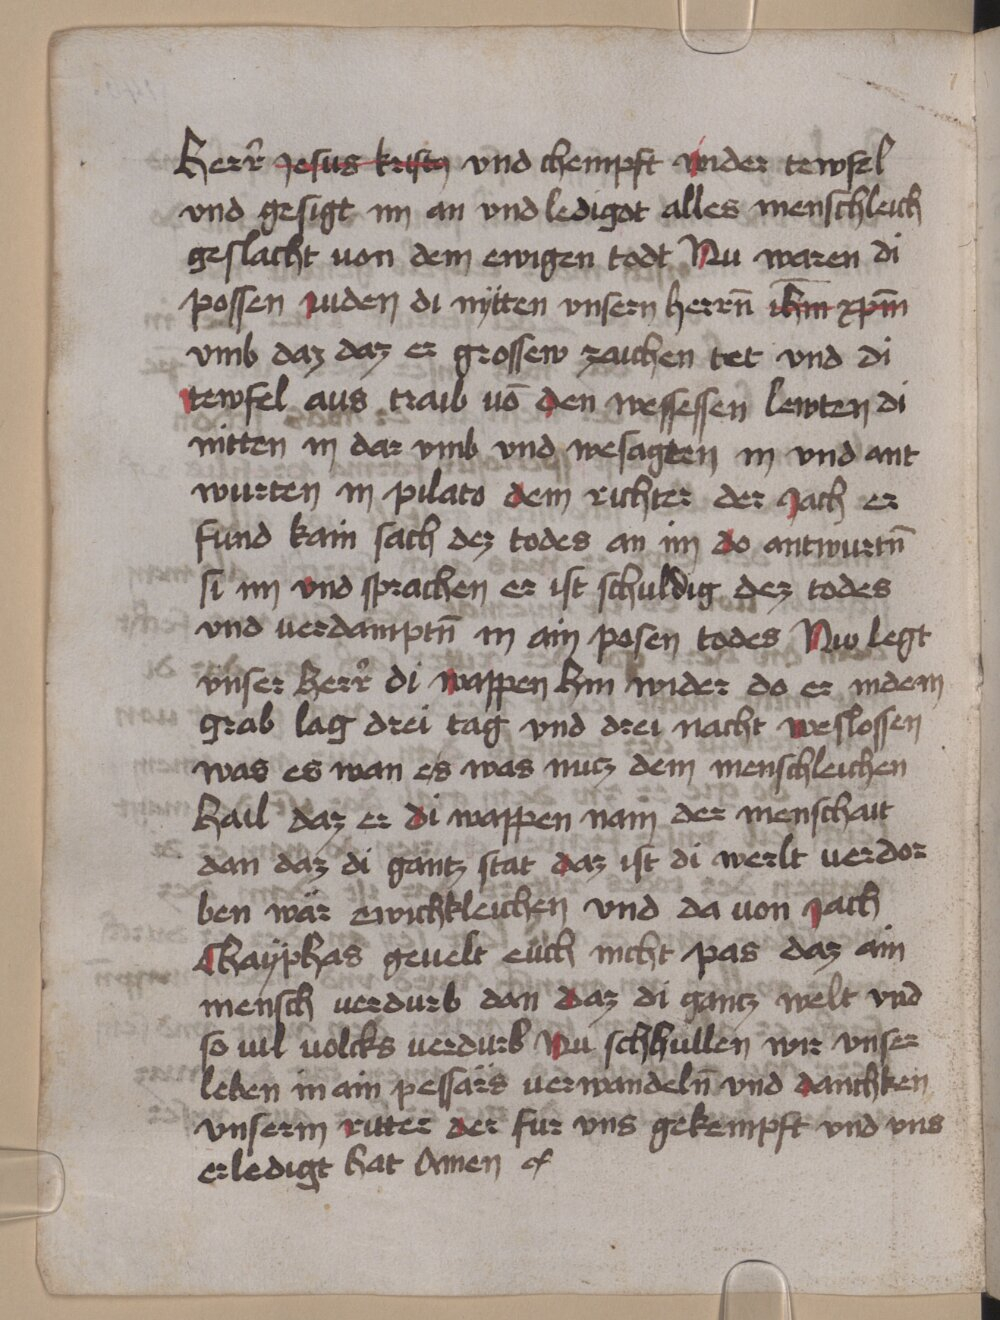 Herr̄ jesus kristꝰ vnd chempft wider tewfel
vnd gesigt im an vnd ledigot alles menschleich
geslächt von dem ewigen todt Nu waren di
possen juden di nÿtten vnsern herrn̄ ih̄m xp̄m
vmb daz daz er grossew zaichen tet vnd di
tewfel aus traib vō den wessessen lewten di
nitten in dar vmb vnd wesagten in vnd ant
wurten in pilato dem richter der jach er
fund kain sach dez todes an im do antwurtn̄
si im vnd sprachen er ist schuldig dez todes
vnd verdamptn̄ in ain posen todes Nw legt
vnser herr̄ di wappen hin wider do er indem
grab lag drei tag vnd drei nacht weslossen
was es wan es was nutz dem menschleichen
hail daz er di wappen nam der menschait
dan daz di gantz stat daz ist di werlt verdor
ben wär ewichkleichen vnd da von jach
Kaÿphas geuelt euch nicht pas daz ain
mensch verdurb dan daz di gantz welt vnd
so uil uolcks verdurb Nu schhullen wir vnser
leben in ain pessärs verwandeln̄ vnd danchken
vnserm ritter der fur vns gekempft vnd vns
erledigt hat Amen